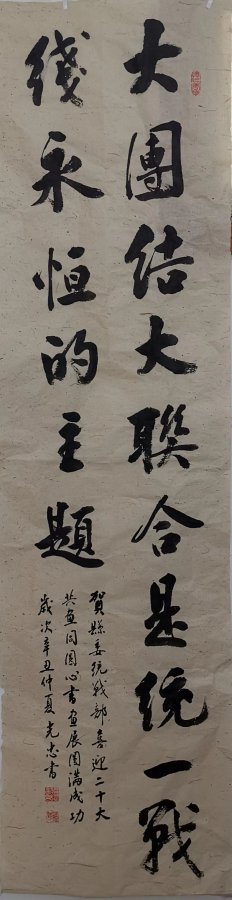 大團结大聯合是统一戰
綫永恒的主題
賀縣委统戰部喜迎二十大
共畫同圆心書畫展圆满成功
歲次辛丑仲夏 光志書